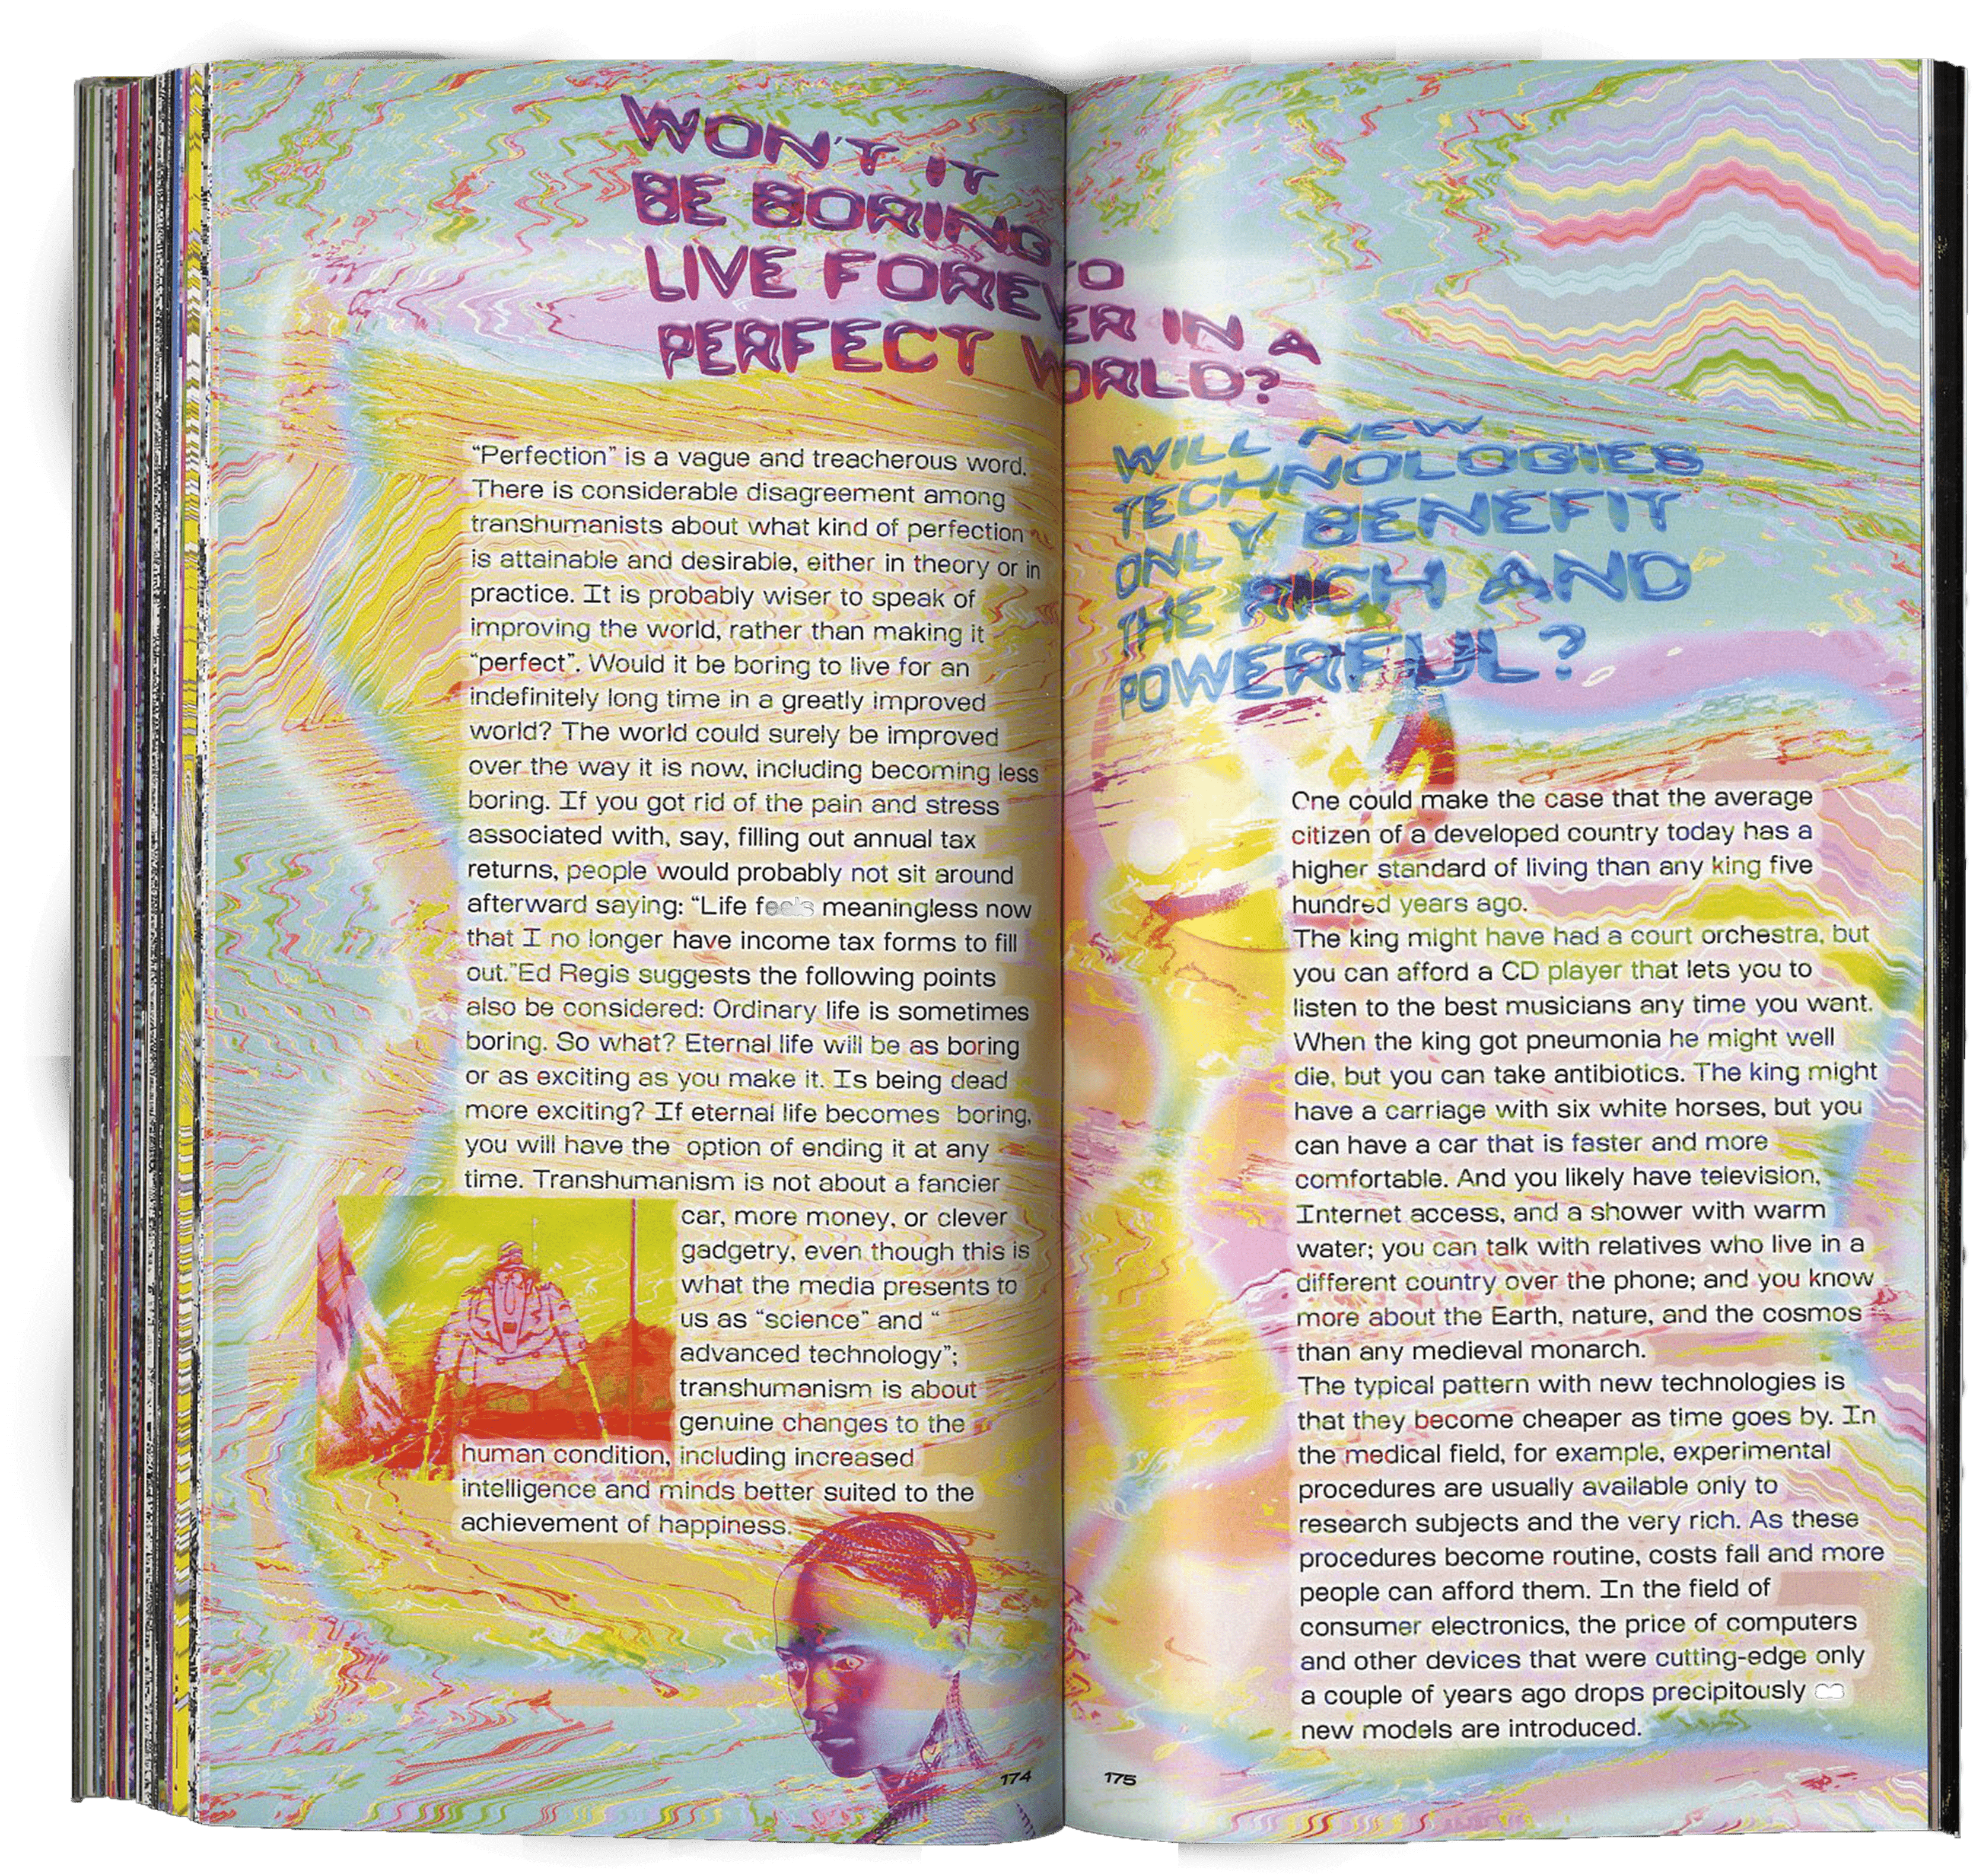 WON'T IT
BE BORING TO
LIVE FOREVER IN A
PERFECT WORLD?
“Perfection” is a vague and treacherous word.
There is considerable disagreement among
transhumanists about what kind of perfection
is attainable and desirable, either in theory or in
practice. It is probably wiser to speak of
improving the world, rather than making it
“perfect”. Would it be boring to live for an
indefinitely long time in a greatly improved
world? The world could surely be improved
over the way it is now, including becoming less
boring. If you got rid of the pain and stress
associated with, say, filling out annual tax
returns, people would probably not sit around
afterward saying: “Life feels meaningless now
that I no longer have income tax forms to fill
out.”Ed Regis suggests the following points
also be considered: Ordinary life is sometimes
boring. So what? Eternal life will be as boring
or as exciting as you make it. Is being dead
more exciting? If eternal life becomes boring,
you will have the option of ending it at any
time. Transhumanism is not about a fancier
car, more money, or clever
gadgetry, even though this is
what the media presents to
us as “science” and “
advanced technology”;
transhumanism is about
genuine changes to the
human condition, including increased
intelligence and minds better suited to the
achievement of happiness.
174
WILL NEW
TECHNOLOGIES
ONLY BENEFIT
THE RICH AND
POWERFUL?
One could make the case that the average
citizen of a developed country today has a
higher standard of living than any king five
hundred years ago.
The king might have had a court orchestra, but
you can afford a CD player that lets you to
listen to the best musicians any time you want.
When the king got pneumonia he might well
die, but you can take antibiotics. The king might
have a carriage with six white horses, but you
can have a car that is faster and more
comfortable. And you likely have television,
Internet access, and a shower with warm
water; you can talk with relatives who live in a
different country over the phone; and you know
more about the Earth, nature, and the cosmos
than any medieval monarch.
The typical pattern with new technologies is
that they become cheaper as time goes by. In
the medical field, for example, experimental
procedures are usually available only to
research subjects and the very rich. As these
procedures become routine, costs fall and more
people can afford them. In the field of
consumer electronics, the price of computers
and other devices that were cutting-edge only
a couple of years ago drops precipitously
new models are introduced.
175